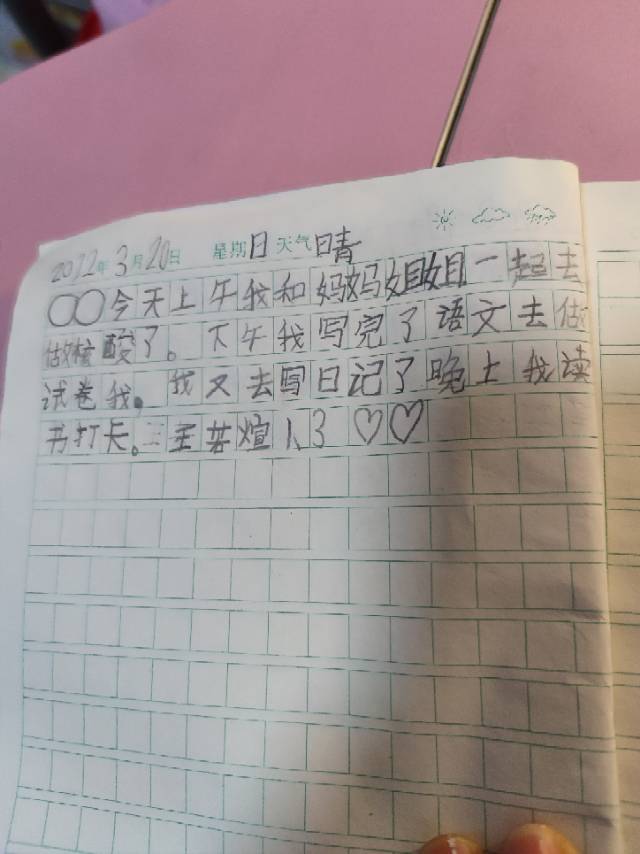 2022年3月20日 星期日 天气晴
今天上午我和妈妈姐姐一起去
做核酸了。下午我写完了语文去做
试卷我。我又去写日记了晚上我读
书打卡。三王芸煊